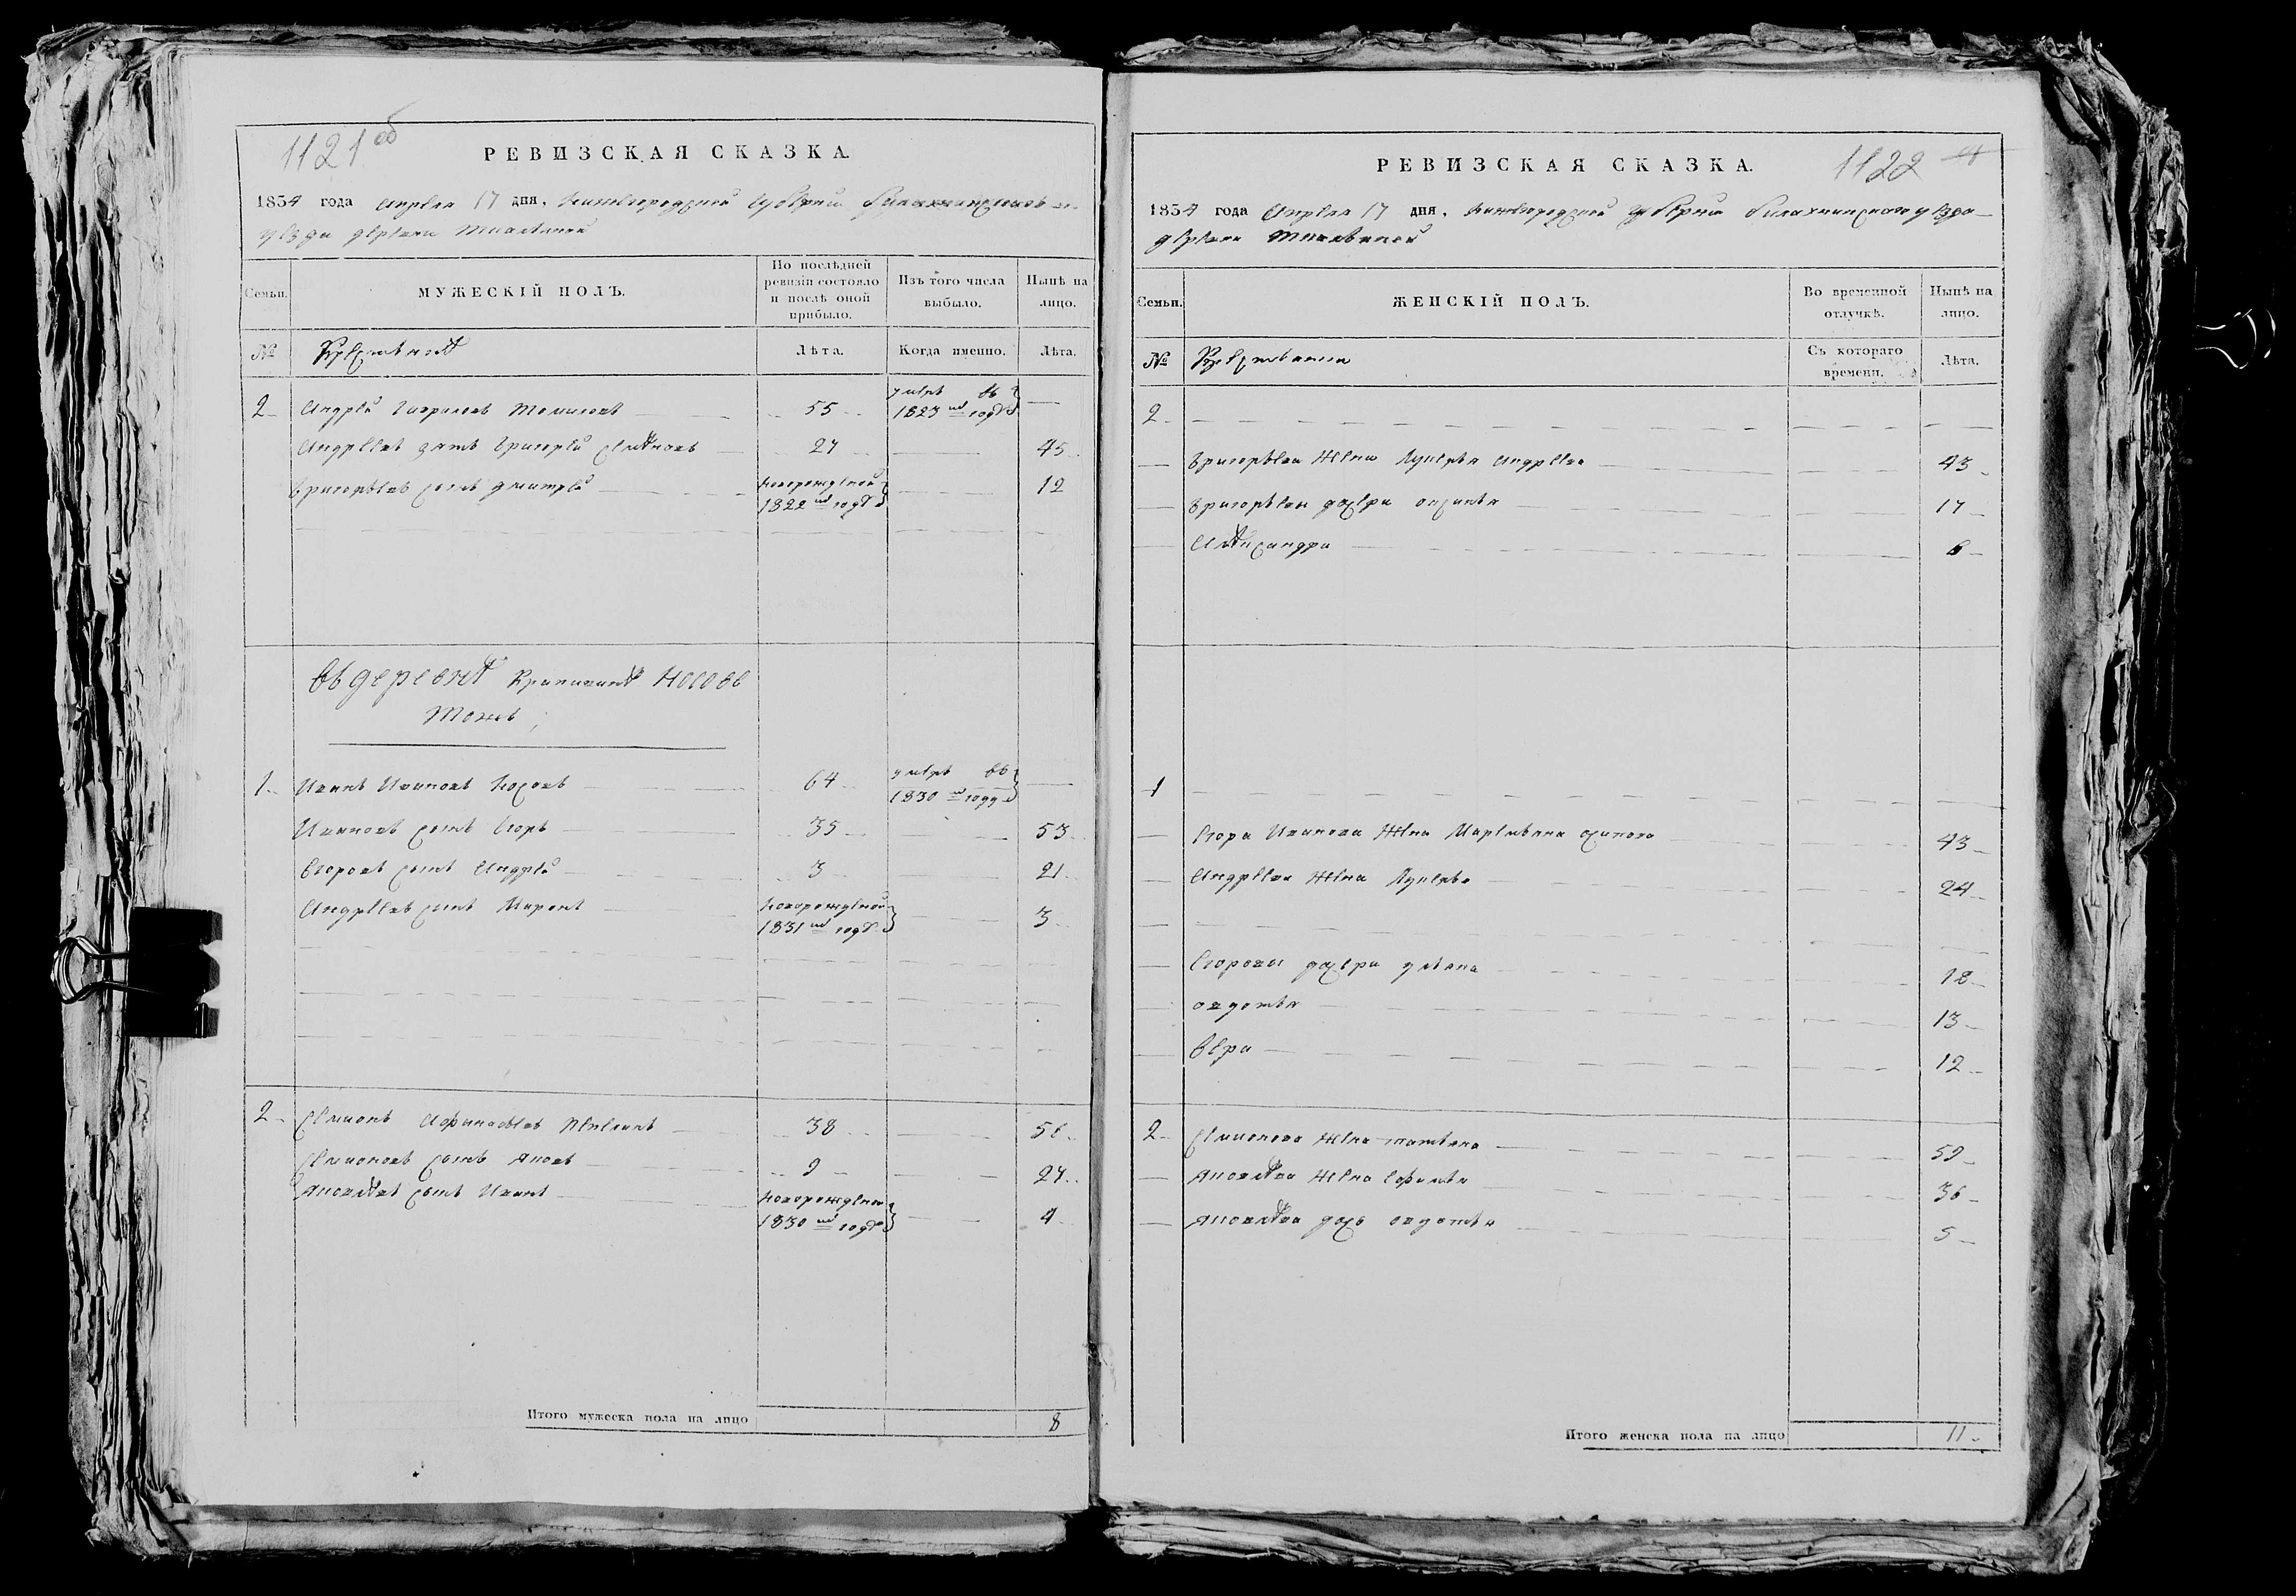 1121 об
РЕВИЗСКАЯ СКАЗКА.
1834 года Апреля 17 дня, Нижегородской губернии Балахнинскаго
уезда деревни
Семьи.
МУЖЕСКІЙ ПОЛЪ.
По послѣдней ревизіи состояло и послѣ оной прибыло.
Изъ того числа выбыло.
Нынѣ на лицо.
№
Крестьянѣ
Лѣта.
Когда именно.
Лѣта.
2 Андрей Гаврилов 55 умеръ въ 1823 м годѣ
Андреевъ зять Григорей Семѣновъ 27 45
Григорьевъ сынъ Дмитрей новорожденой 1822 м годѣ 12
Въ деревнѣ Носовѣ
Тожъ
1 Иванъ Ивановъ Носовъ 64 умеръ въ 1830 м годѣ
Ивановъ сынъ Егоръ 35 53
Егоровъ сынъ Андрей 3 21
Андреевъ сынъ Миронъ новорожденой 1831 м годѣ 3
2 Семионъ Афанасьевъ 38 56
Семионовъ сынъ Яковъ 9 27
Яковлѣвъ сынъ Иванъ новорожденой 1830 м годѣ 4
Итого мужеска пола на лицо 8
1122
РЕВИЗСКАЯ СКАЗКА.
1834 года Апреля 17 дня, Нижегородской губернии Балахнинскаго уезда
деревни
Семьи.
ЖЕНСКІЙ ПОЛЪ.
Во временной отлучкѣ.
Нынѣ на лицо.
№
Крестьянки
Съ котораго времени.
Лѣта.
2
Григорьева жена Лукерья Андреева 43
Григорьевы дочери Аксинья 17
Алѣксандра 6
1
Егора Иванова жена Маремьяна Осипова 43
Андреева жена Лукерья 24
Егоровы дочери Ульяна 18
Овдотья 13
Вера 12
2 Семионова жена Татьяна 59
Яковлѣва жена Ефимья 36
Яковлѣва дочь Овдотья 5
Итого женска пола на лицо 11